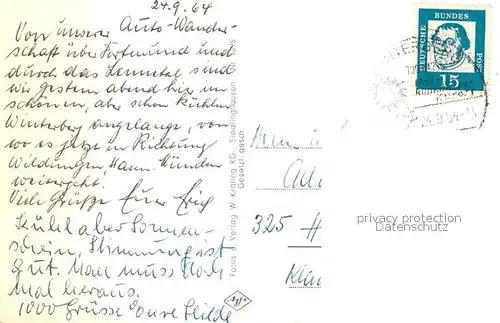 24.9.64
Von unserer Auto-Wander-
schaft über Dortmund und
durch das Lennetal sind
wir gestern abend hier im
schönen, aber schon kühlen
Winterberg angelangt, von
wo es jetzt in Richtung
Wildungen, Hann. Münden
weitergeht.
Viele Grüße Euer Erich
Kühl aber Sonnen-
schein, Stimmung ist
gut. Man muss doch
mal heraus.
1000 Grüsse Eure Hilde
Fotos u. Verlag W. Kräling KG, Siedlinghausen
Gesetzl. gesch.
Agfa
DEUTSCHE BUNDES POST
15
24.9.64-15
325 H
privacy protection
Datenschutz